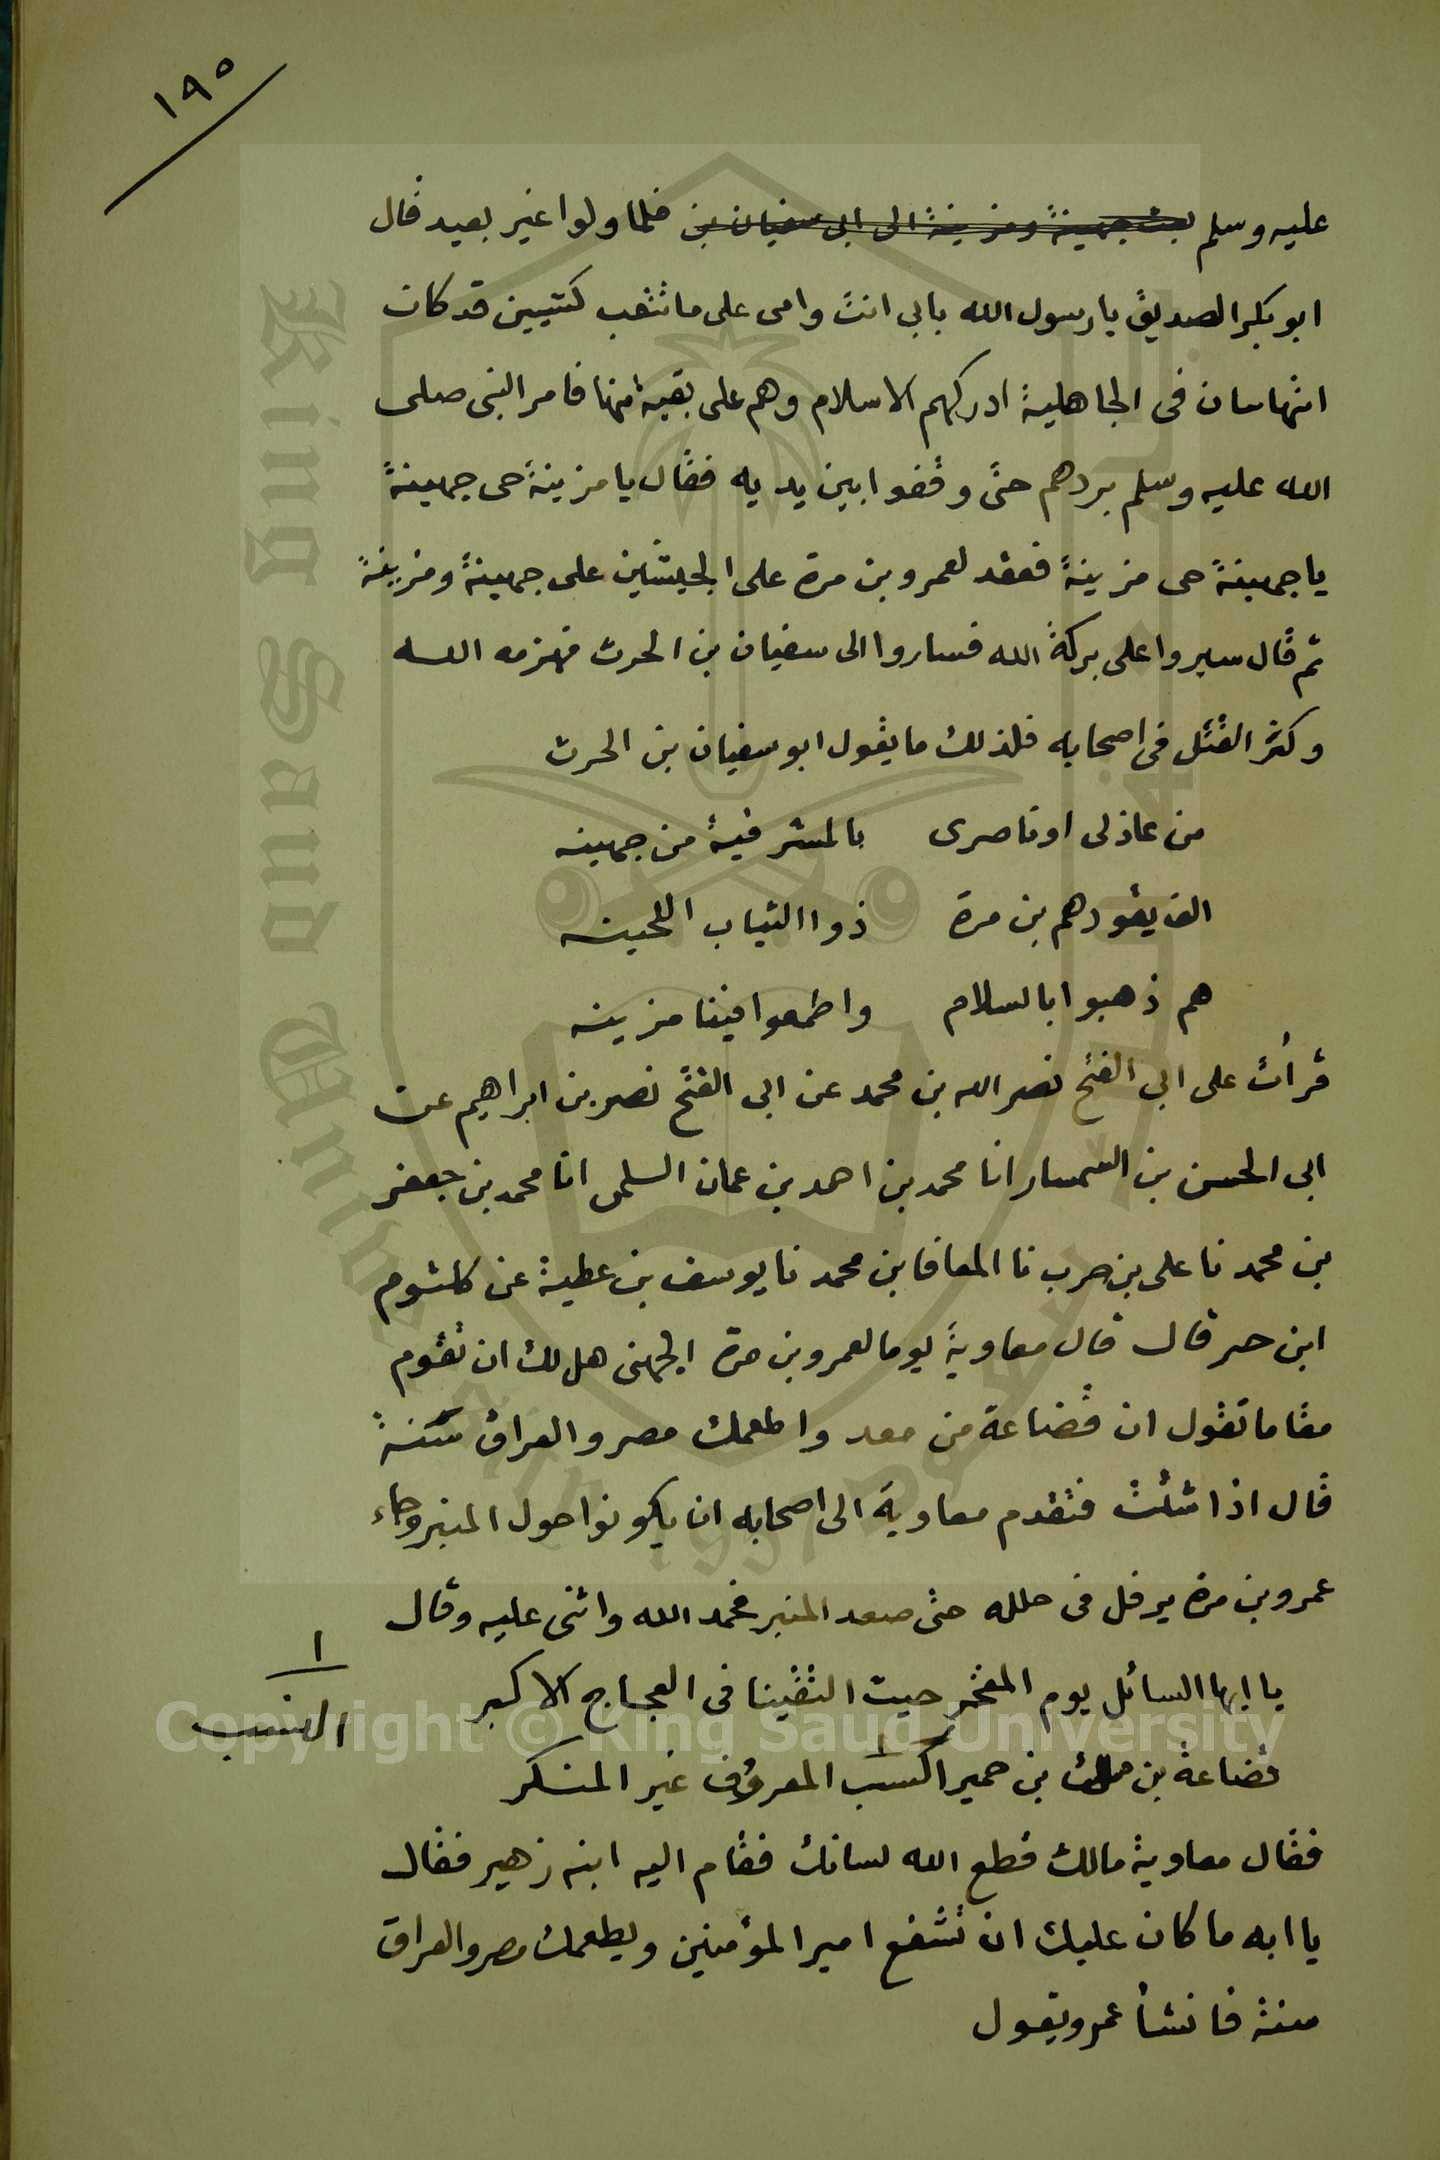 ١٩٥
عليه وسلم بعث جهينة ومزينة الى ابى سفيان بن فلما ولوا غير بعيد قال
ابو بكر الصديق يا رسول الله بابى انت وامى على ما تبعث كتيبين قد كان
انهاسان فى الجاهلية ادركهم الاسلام وهم على بقية منها فامر النبى صلى
الله عليه وسلم بردهم حتى وقفوا بين يديه فقال يا مزينة حى جهينة
يا جهينة حى مزينة فعقد لعمرو بن مرة على الجيشين على جهينة ومزينة
ثم قال سيروا على بركة الله فساروا الى سفيان بن الحرث فهزمه الله
وكثر القتل فى اصحابه فلذلك ما يقول ابو سفيان بن الحرث
من عاذلى او ناصرى بالمشرفية من جهينه
الف يقودهم بن مرة ذوا الثياب اللحينه
هم ذهبوا بالسلام واطمعوا فينا مزينه
قرأت على ابى الفتح نصر الله بن محمد عن ابى الفتح نصر بن ابراهيم عن
ابى الحسن بن السمسار انا محمد بن احمد بن عمان السلمى انا محمد بن جعفر
بن محمد نا على بن حرب نا المعافا بن محمد نا يوسف بن عطية عن كلثوم
ابن حر قال قال معاوية يوما لعمرو بن مرة الجهنى هل لك ان تقوم
مقاما تقول ان قضاعة من معد واطعمك مصر والعراق سنة
قال اذا شئت فتقدم معاوية الى اصحابه ان يكونوا حول المنبر وجاء
عمرو بن مرة يرفل فى حلله حتى صعد المنبر فحمد الله واثنى عليه وقال
يا ايها السائل يوم المفخر حيث التقينا فى العجاج الاكبر
١
النسب
قضاعة بن مالك بن حمير اكسب المعروف غير المنكر
فقال معاوية مالك قطع الله لسانك فقام اليه ابنه زهير فقال
يا ابه ما كان عليك ان تشفع امير المؤمنين ويطعمك مصر والعراق
سنة فانشأ عمرو يقول
Copyright © King Saud University
King Saud University
1957